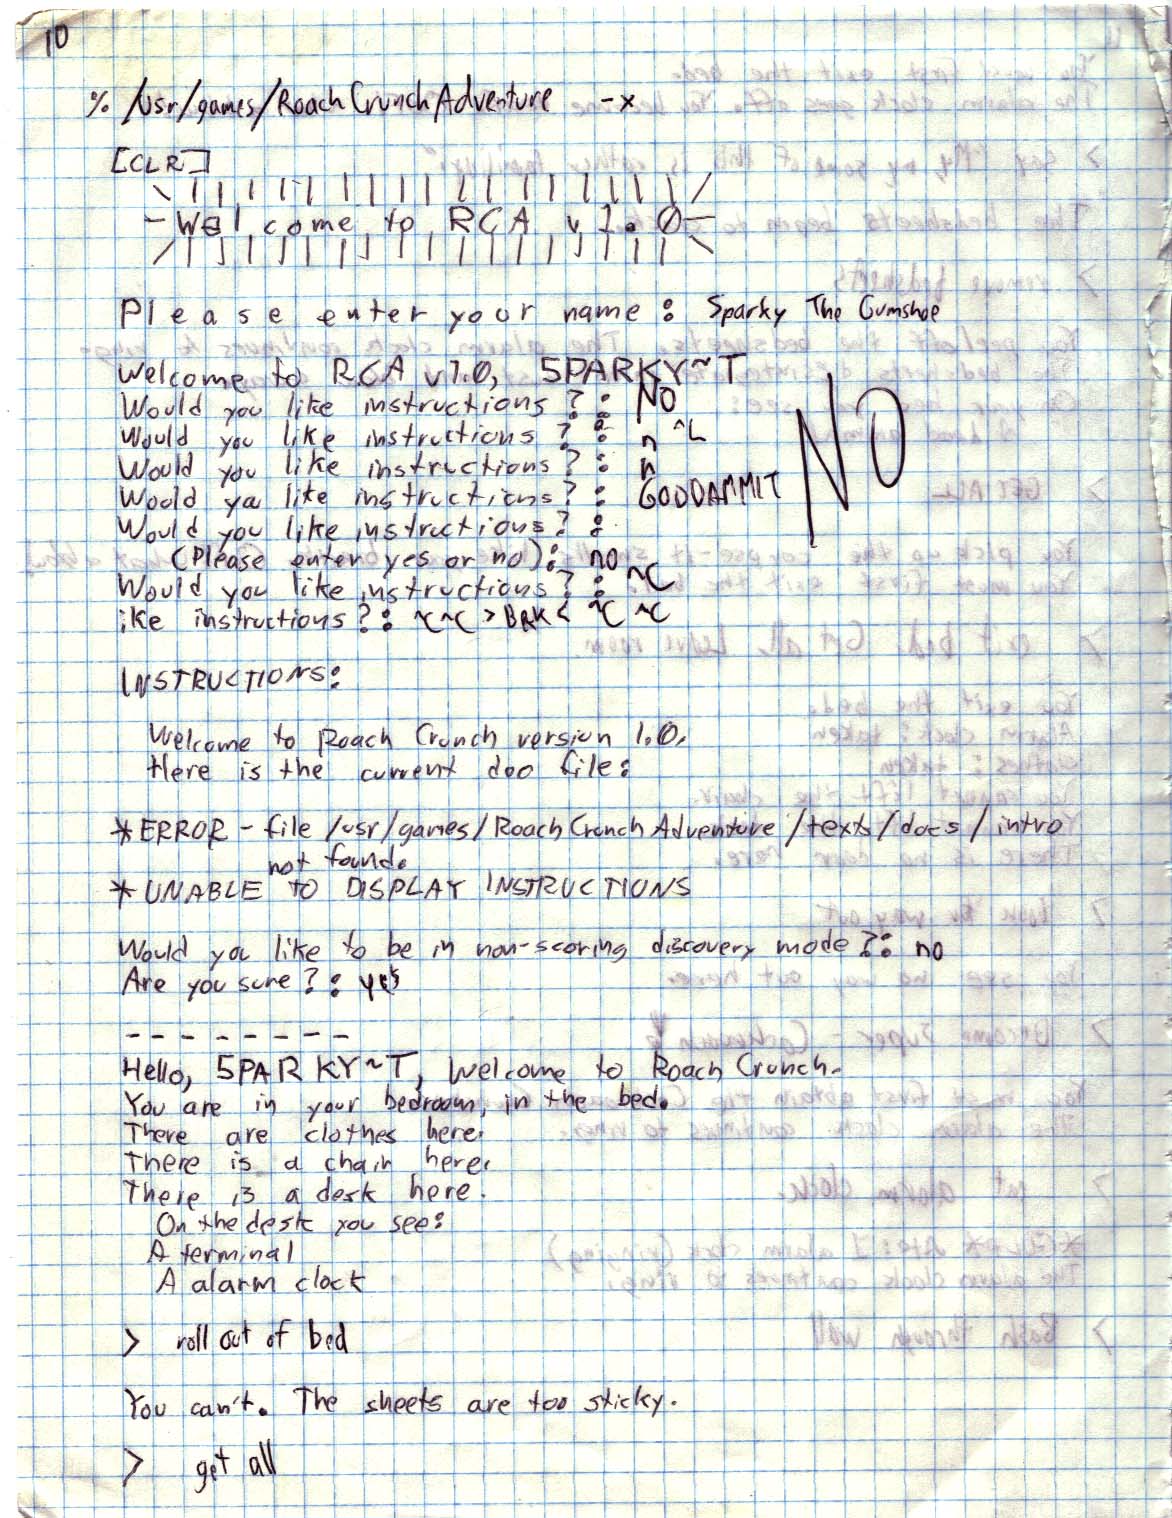 10
% /usr/games/RoachCrunchAdventure -x
[CLR]
Welcome to RCA v1.0
Please enter your name: Sparky The Gumshoe
Welcome to RCA v1.0, 5PARKY~T
Would you like instructions?: NO
Would you like instructions?: n ^L
Would you like instructions?: n
Would you like instructions?: GODDAMMIT NO
Would you like instructions?:
(Please enter yes or no): no
Would you like instructions?: ^C
ike instructions?: ^C^C >BRK< ^C ^C
INSTRUCTIONS:
Welcome to Roach Crunch version 1.0.
Here is the current doo file:
*ERROR - file /usr/games/RoachCrunchAdventure/texts/docs/intro
not found.
*UNABLE TO DISPLAY INSTRUCTIONS
Would you like to be in non-scoring discovery mode?: no
Are you sure?: yes
--------
Hello, 5PARKY~T, Welcome to Roach Crunch.
You are in your bedroom, in the bed.
There are clothes here.
There is a chair here.
There is a desk here.
On the desk you see:
A terminal
A alarm clock
> roll out of bed
You can't. The sheets are too sticky.
> get all